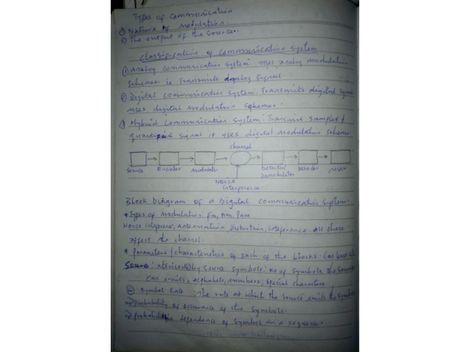 Types of Communication
① Nature of Modulation.
② The output of the Source.
Classification of Communication System
① Analog Communication System: Uses analog modulation
schemes to Transmits analog signal
② Digital Communication System: Transmits digital signal
uses digital modulation schemes.
③ Hybrid Communication System: Transmits Sampled &
signal it uses digital modulation scheme
channel
Source Encoder Modulator Detector/ Decoder user
Demodulator
Noise
interference
Block Diagram of a Digital Communication System
* Types of Modulation: Fm, Pm, Pam
Noise, Attenuation, Distortion, interference all these
affect the channel.
* Parameters / characteristics of each of the blocks
Source: Source Symbols: No of Symbols the Source
can emits, alphabets, numbers, special characters
Symbol Rate: The rate at which the source emits the symbols
probability of occurrence of the Symbols
dependence of Symbols in a sequence.